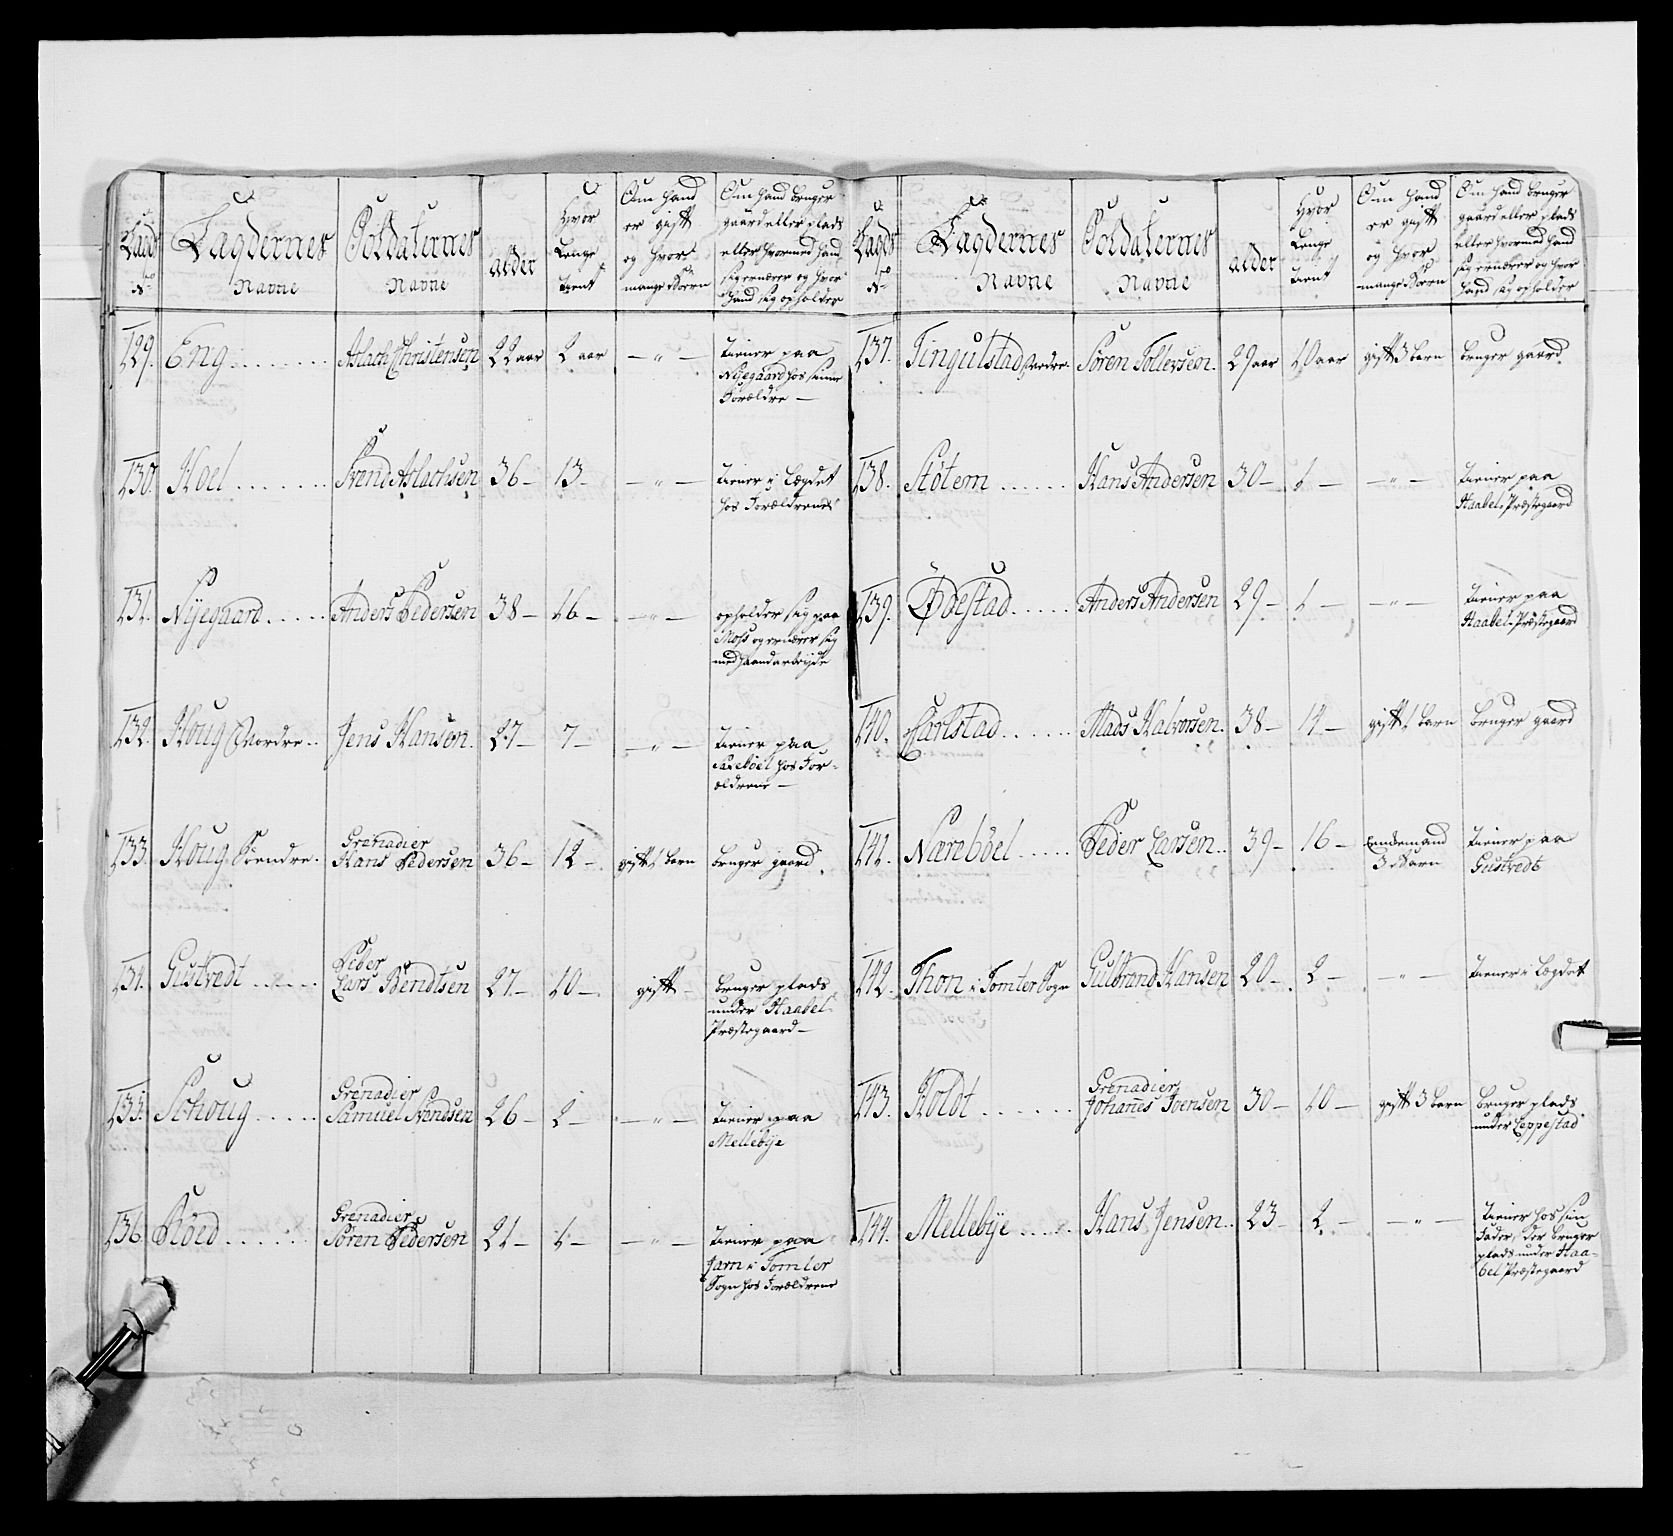 Lagds No
Lagdernes Navne
Soldaternes Navne
alder
Hvor Lenge tient
Om hand er gift og hvor mange Børn
Om hand bruger gaard eller plads eller hvormed hand sig ernærer og hvor hand sig opholder
129. Eng Aslach Christensen 22 aar 2 aar — " — tiener paa
Nÿegaard hos sinne
Forældre —
130. Hoel Svend Aslachsen 36 — 13 — " — tiener i Lægdet
hos Forældrenes
131. Nÿegaard Anders Pedersen 38 — 16 — — " — opholder sig paa
Moss og ernærer sig
med haandarbejde
132. Houg Nordre Jens Hansen. 27 — 7 — — " — tiener paa
hos For-
ældrene —
133. Houg Søendre. Grenadier
Hans Pedersen 36 — 12 — gift 1 barn bruger gaard.
134. Gustvedt Peder
Lars Bendtsen 27 — 10 — gift — bruger plads
under Haabel
Præstegaard —
135. Schoug Grenadier
Samuel Svendsen 26 — 2 — — " — tiener paa
Mellebÿe
136. Röed Grenadier
Sören Pedersen 21 — 1 — — " — tiener paa
Jarn i Tomter
Sogn hos Forældrene
Lagds No
Lagdernes Navne
Soldaternes Navne
alder
Hvor Lenge tient
Om hand er gift og hvor mange Børn
Om hand bruger gaard eller plads eller hvormed hand sig ernærer og hvor hand sig opholder
137. Tingulstad Nordre. Sören Tollevsen. 29 aar 10 aar gift 3 barn bruger gaard.
138. Stötem Hans Andersen 30 — 1 — — " — tiener paa
Haabel Præstegaard
139. Ödestad Anders Andersen 29 — 1 — — " — tiener paa
Haabel Præstegaard
140. Carlstad Mads Halvorsen. 38 — 14 — gift 1 barn bruger gaard
141. Næreböel Peder Larsen. 39 — 16 — Enckemand
3 Barn tiener paa
Gustvedt
142. Thon i Tomter Sogn Gulbrand Hansen 20 — 2 — — " — tiener i Lægdet
143. Holdt Grenadier
Johan̄es Ivensen 30 — 10 — gift 3 barn bruger plads
under Leppestad
144. Mellebÿe Hans Jensen 23 — 2 — — " — tiener hos sin
Fader, der bruger
plads under Haa-
bel Præstegaard